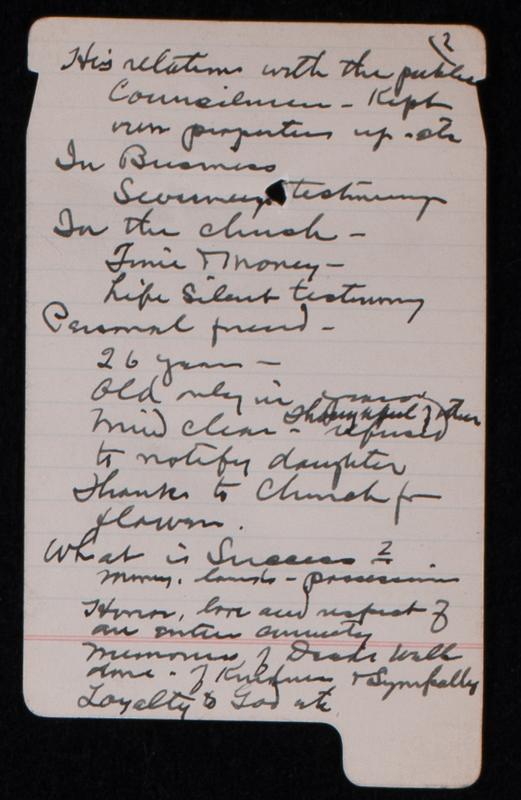 2
His relations with the public
Councilman - Kept
own properties up - etc
In Business
testimony
In the church -
Time & Money -
Life Silent testimony
Personal friend -
26 years -
Old only in years
Mind clear - Thoughtful of other
refused
to notify daughter
Thanks to Church for
flowers.
What is Success?
Money, lands - possessions
Honor, love and respect of
an entire community
Memories of Deeds Well
done - of Kindness & Sympathy
Loyalty to God etc